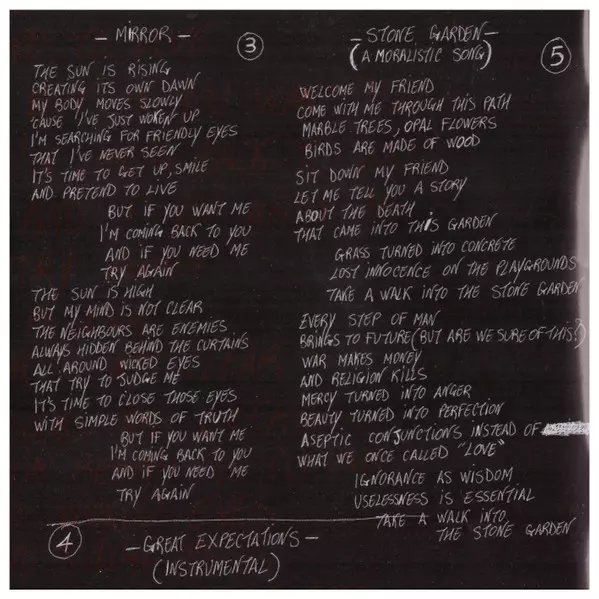 - MIRROR -
3
THE SUN IS RISING
CREATING ITS OWN DAWN
MY BODY MOVES SLOWLY
'CAUSE I'VE JUST WOKEN UP
I'M SEARCHING FOR FRIENDLY EYES
THAT I'VE NEVER SEEN
IT'S TIME TO GET UP, SMILE
AND PRETEND TO LIVE
BUT IF YOU WANT ME
I'M COMING BACK TO YOU
AND IF YOU NEED ME
TRY AGAIN
THE SUN IS HIGH
BUT MY MIND IS NOT CLEAR
THE NEIGHBOURS ARE ENEMIES
ALWAYS HIDDEN BEHIND THE CURTAINS
ALL AROUND WICKED EYES
THAT TRY TO JUDGE ME
IT'S TIME TO CLOSE THOSE EYES
WITH SIMPLE WORDS OF TRUTH
BUT IF YOU WANT ME
I'M COMING BACK TO YOU
AND IF YOU NEED ME
TRY AGAIN
4
- GREAT EXPECTATIONS -
(INSTRUMENTAL)
- STONE GARDEN -
(A MORALISTIC SONG)
5
WELCOME MY FRIEND
COME WITH ME THROUGH THIS PATH
MARBLE TREES, OPAL FLOWERS
BIRDS ARE MADE OF WOOD
SIT DOWN MY FRIEND
LET ME TELL YOU A STORY
ABOUT THE DEATH
THAT CAME INTO THIS GARDEN
GRASS TURNED INTO CONCRETE
LOST INNOCENCE ON THE PLAYGROUNDS
TAKE A WALK INTO THE STONE GARDEN
EVERY STEP OF MAN
BRINGS TO FUTURE (BUT ARE WE SURE OF THIS?)
WAR MAKES MONEY
AND RELIGION KILLS
MERCY TURNED INTO ANGER
BEAUTY TURNED INTO PERFECTION
ASEPTIC CONJUNCTIONS INSTEAD OF
WHAT WE ONCE CALLED "LOVE"
IGNORANCE AS WISDOM
USELESSNESS IS ESSENTIAL
TAKE A WALK INTO
THE STONE GARDEN